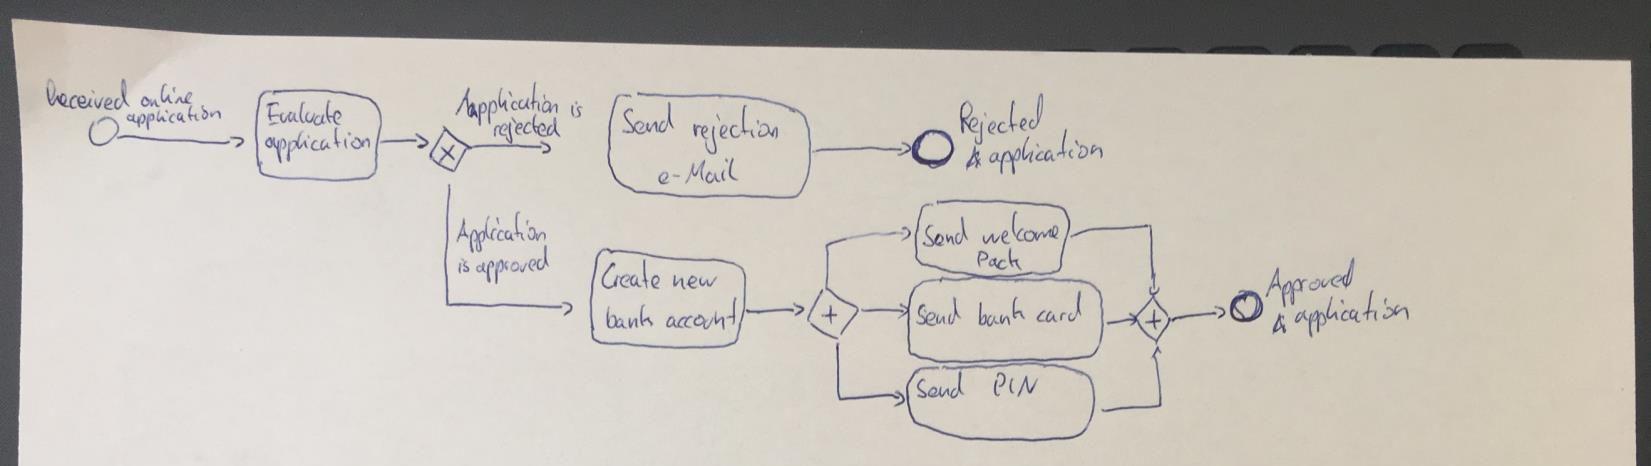 Received online
application
Evaluate
application
Application is
rejected
Send rejection
e-Mail
Rejected
application
Application
is approved
Create new
bank account
Send welcome
Pack
Send bank card
Send PIN
Approved
application